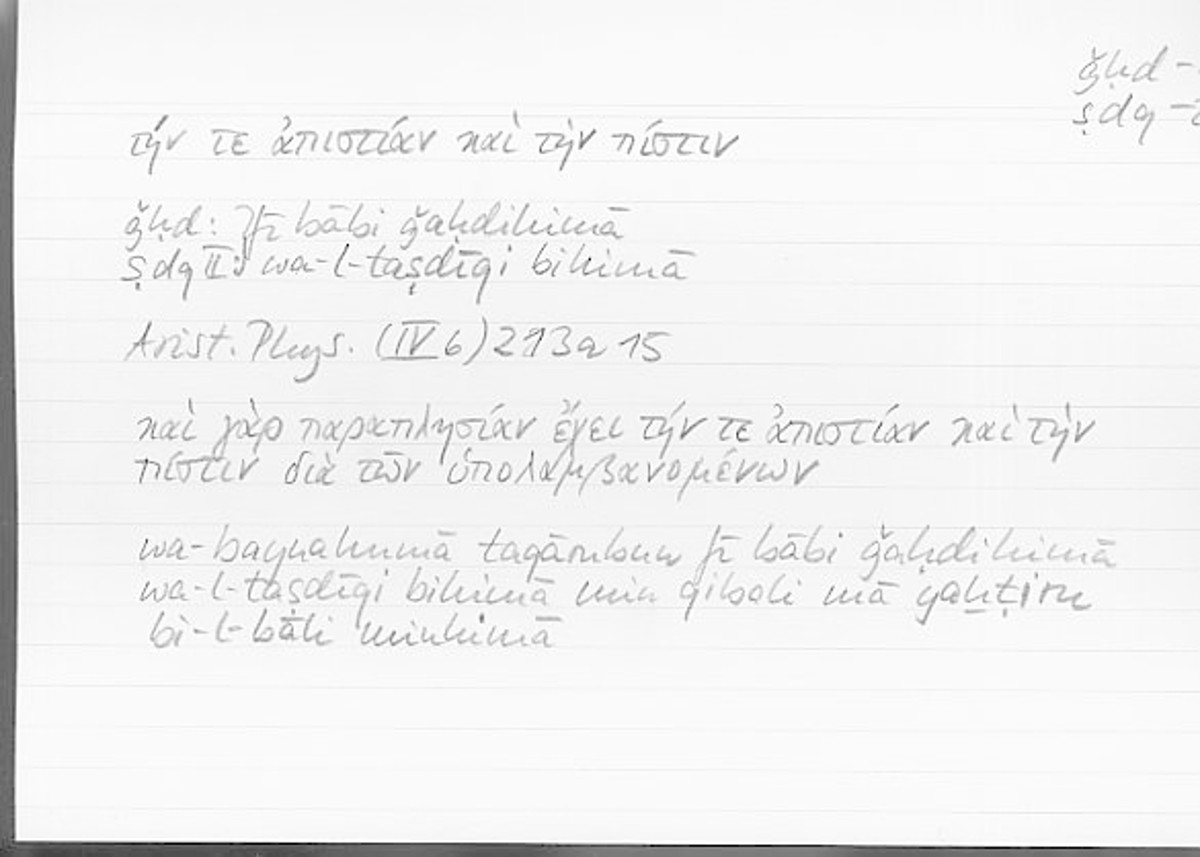 ǧḥd –
ṣdq –
τήν τε ἀπιστίαν καὶ τὴν πίστιν
ǧḥd: fī bābi ǧaḥdihimā
ṣdq II: wa-l-taṣdīqi bihimā
Arist. Phys. (IV 6) 213a 15
καὶ γὰρ παραπλησίαν ἔχει τήν τε ἀπιστίαν καὶ τὴν
πίστιν διὰ τῶν ὑπολαμβανομένων
wa-baynahumā taqārubun fī bābi ǧaḥdihimā
wa-l-taṣdīqi bihimā min qibali mā yaḫṭiru
bi-l-bāli minhimā